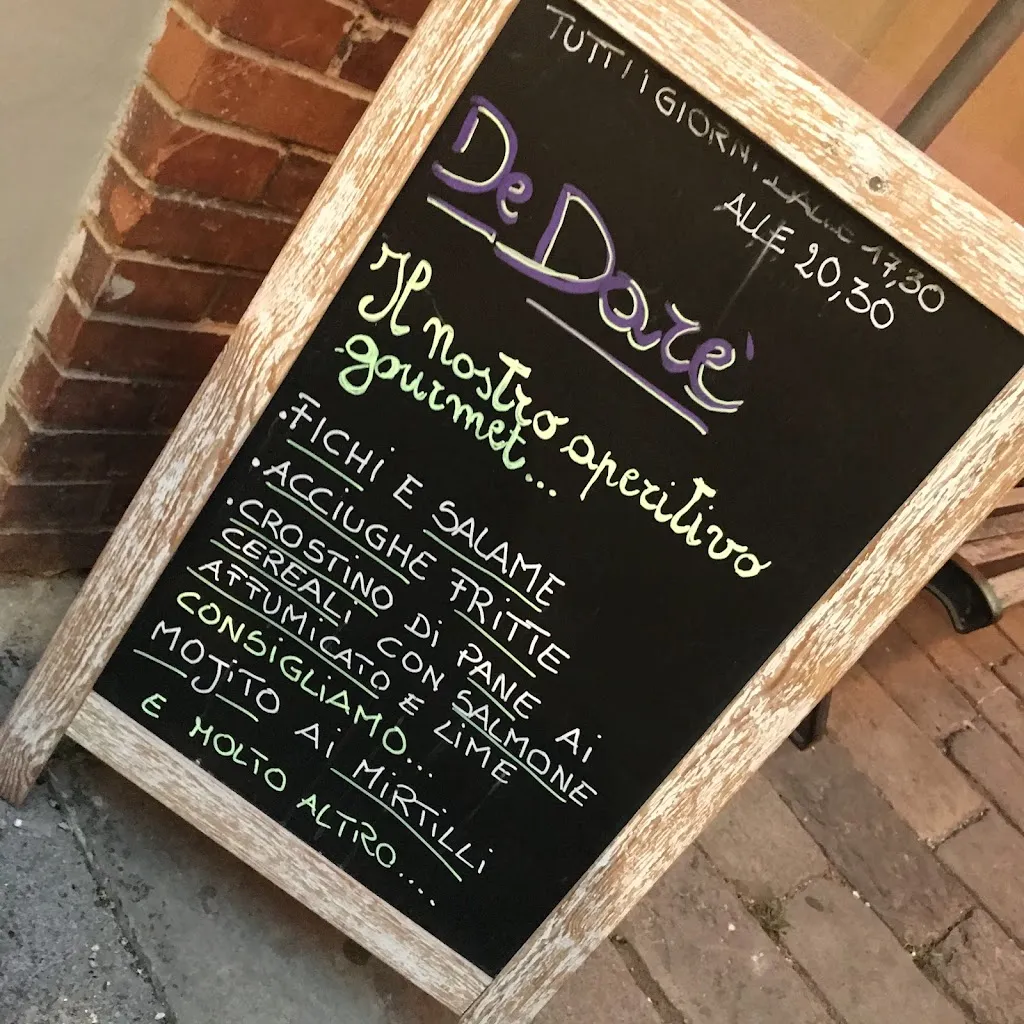 TUTTI i GIORNi DALLE 17,30
ALLE 20,30
De Darè
Il nostro aperitivo
gourmet...
·FICHI E SALAME
·ACCIUGHE FRITTE
·CROSTINO Di PANE Ai
CEREALi CON SALMONE
AFFUMICATO E LIME
CONSIGLIAMO...
MOJITO Ai MIRTILLi
E MOLTO ALTRO....